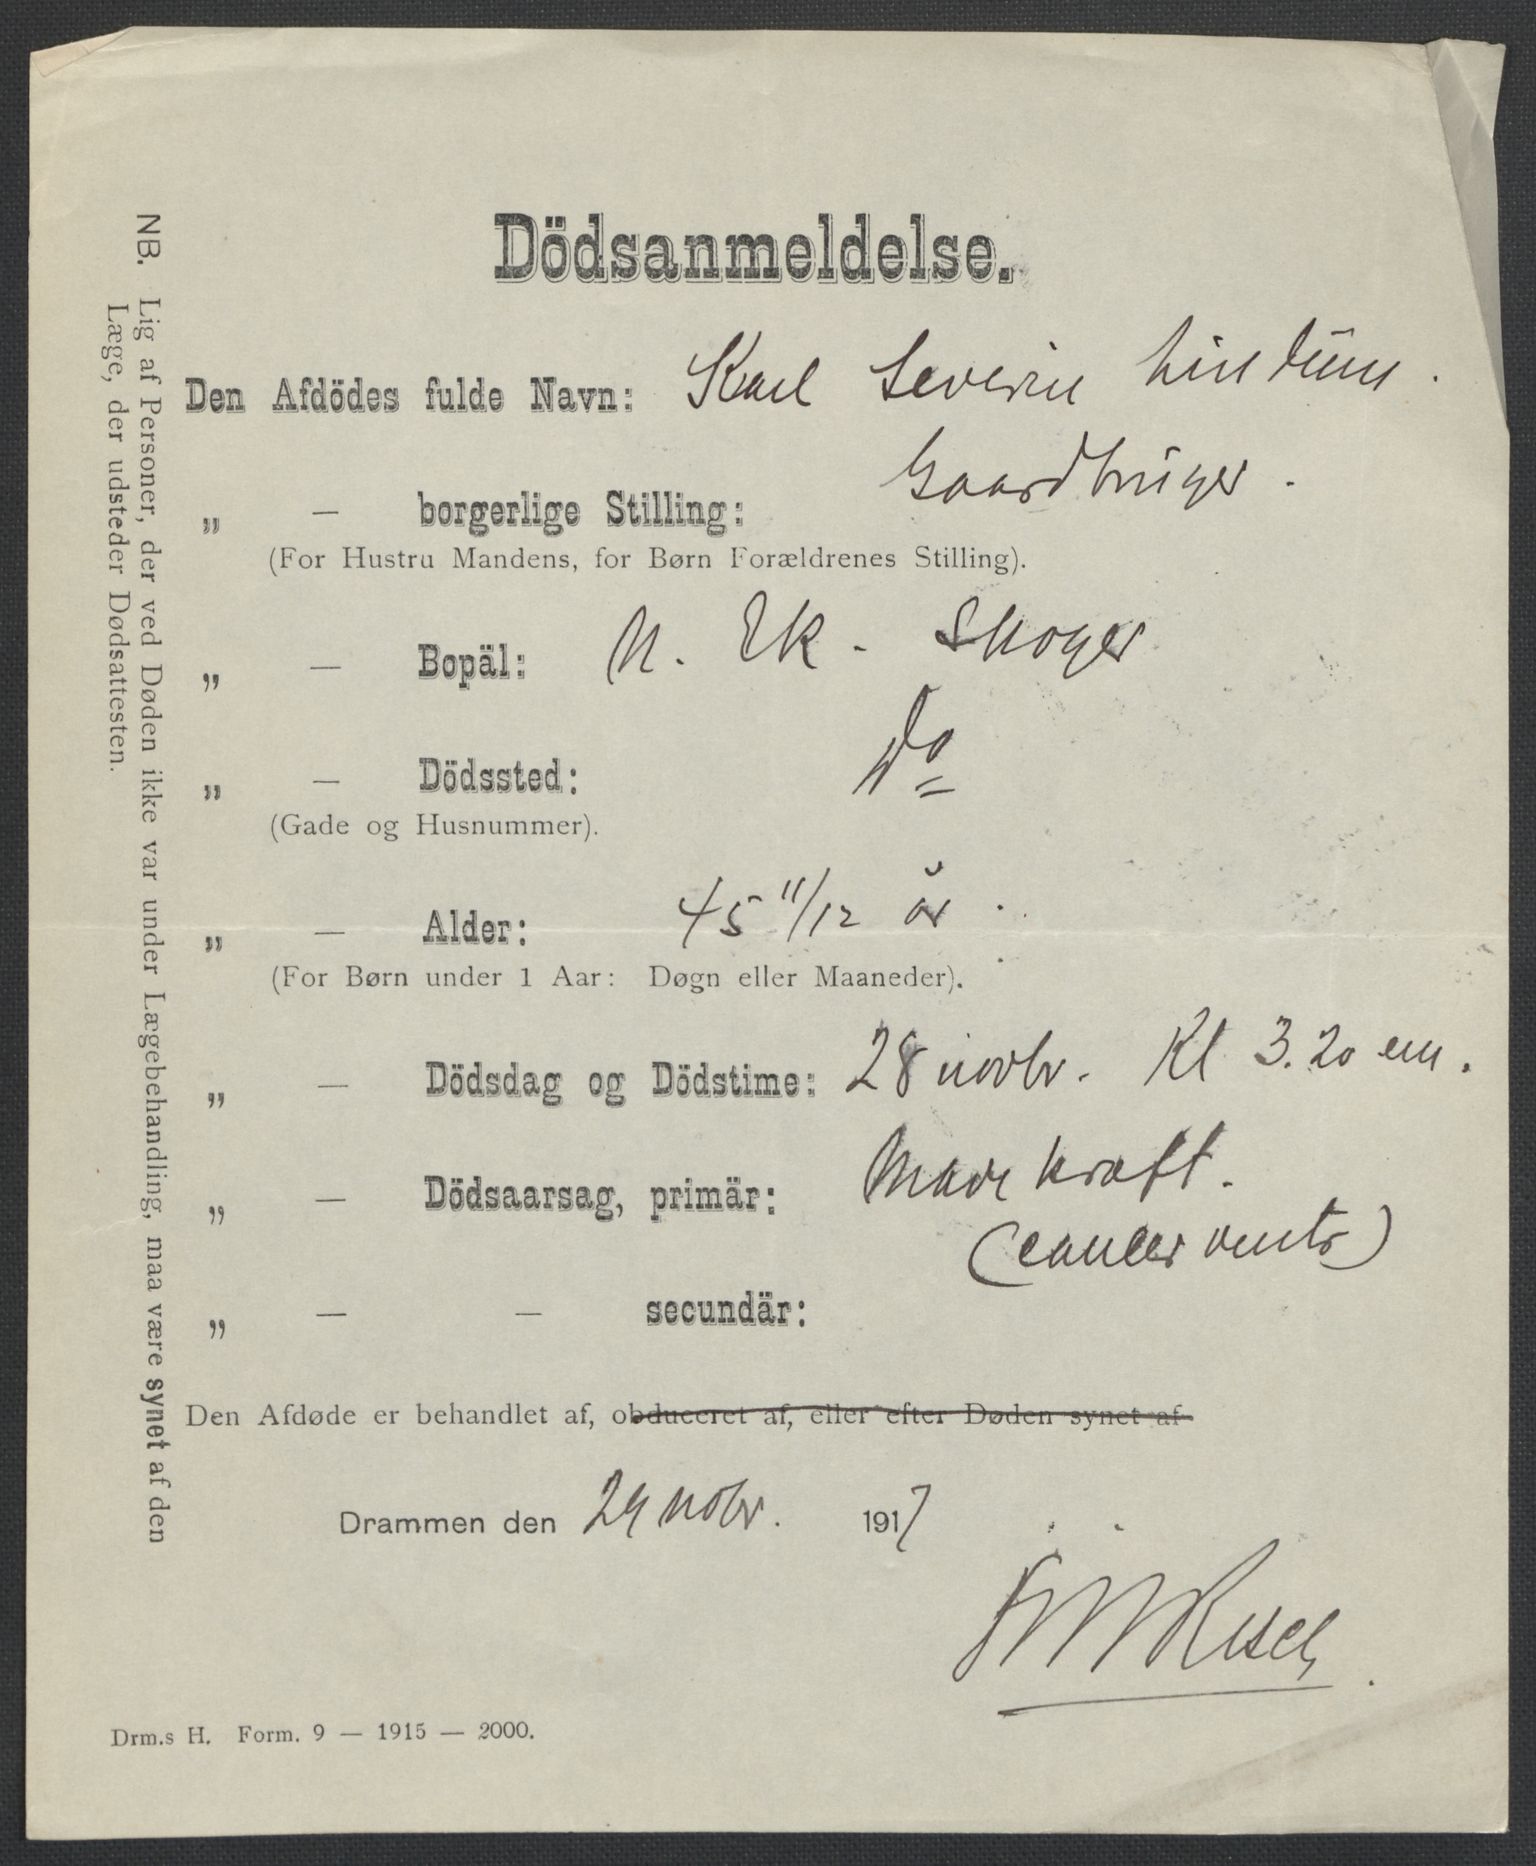 Dödsanmeldelse.
Den Afdödes fulde Navn: Karl Severin Lindum.
„ — borgerlige Stilling: Gaardbruger.
(For Hustru Mandens, for Børn Forældrenes Stilling).
„ — Bopäl: N. Ek. Skoger
„ — Dödssted: Do
(Gade og Husnummer).
„ — Alder: 45 11/12 år.
(For Børn under 1 Aar: Døgn eller Maaneder).
„ — Dödsdag og Dödstime: 28 novbr. Kl 3.20 em.
„ — Dödsaarsag, primär: Mavekræft.
(cancer ventr)
„ — — secundär:
Den Afdøde er behandlet af, obduceret af, eller efter Døden synet af
Drammen den 29 novbr. 1917
Drm.s H. Form. 9 — 1915 — 2000.
NB. Lig af Personer, der ved Døden ikke var under Lægebehandling, maa være synet af den
Læge, der udsteder Dødsattesten.